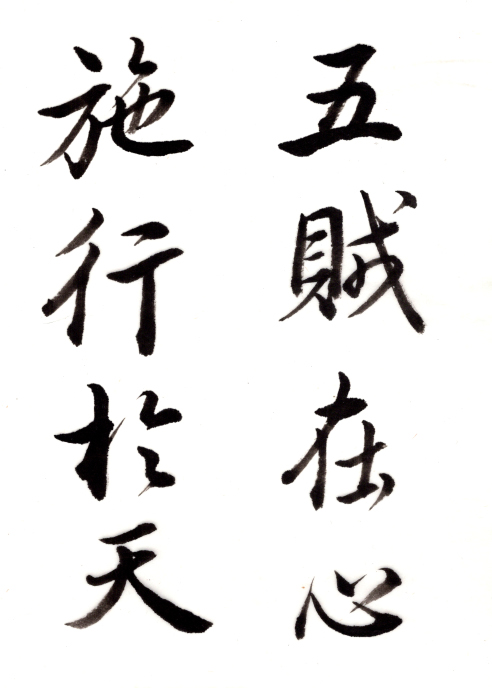 五賊在心
施行於天